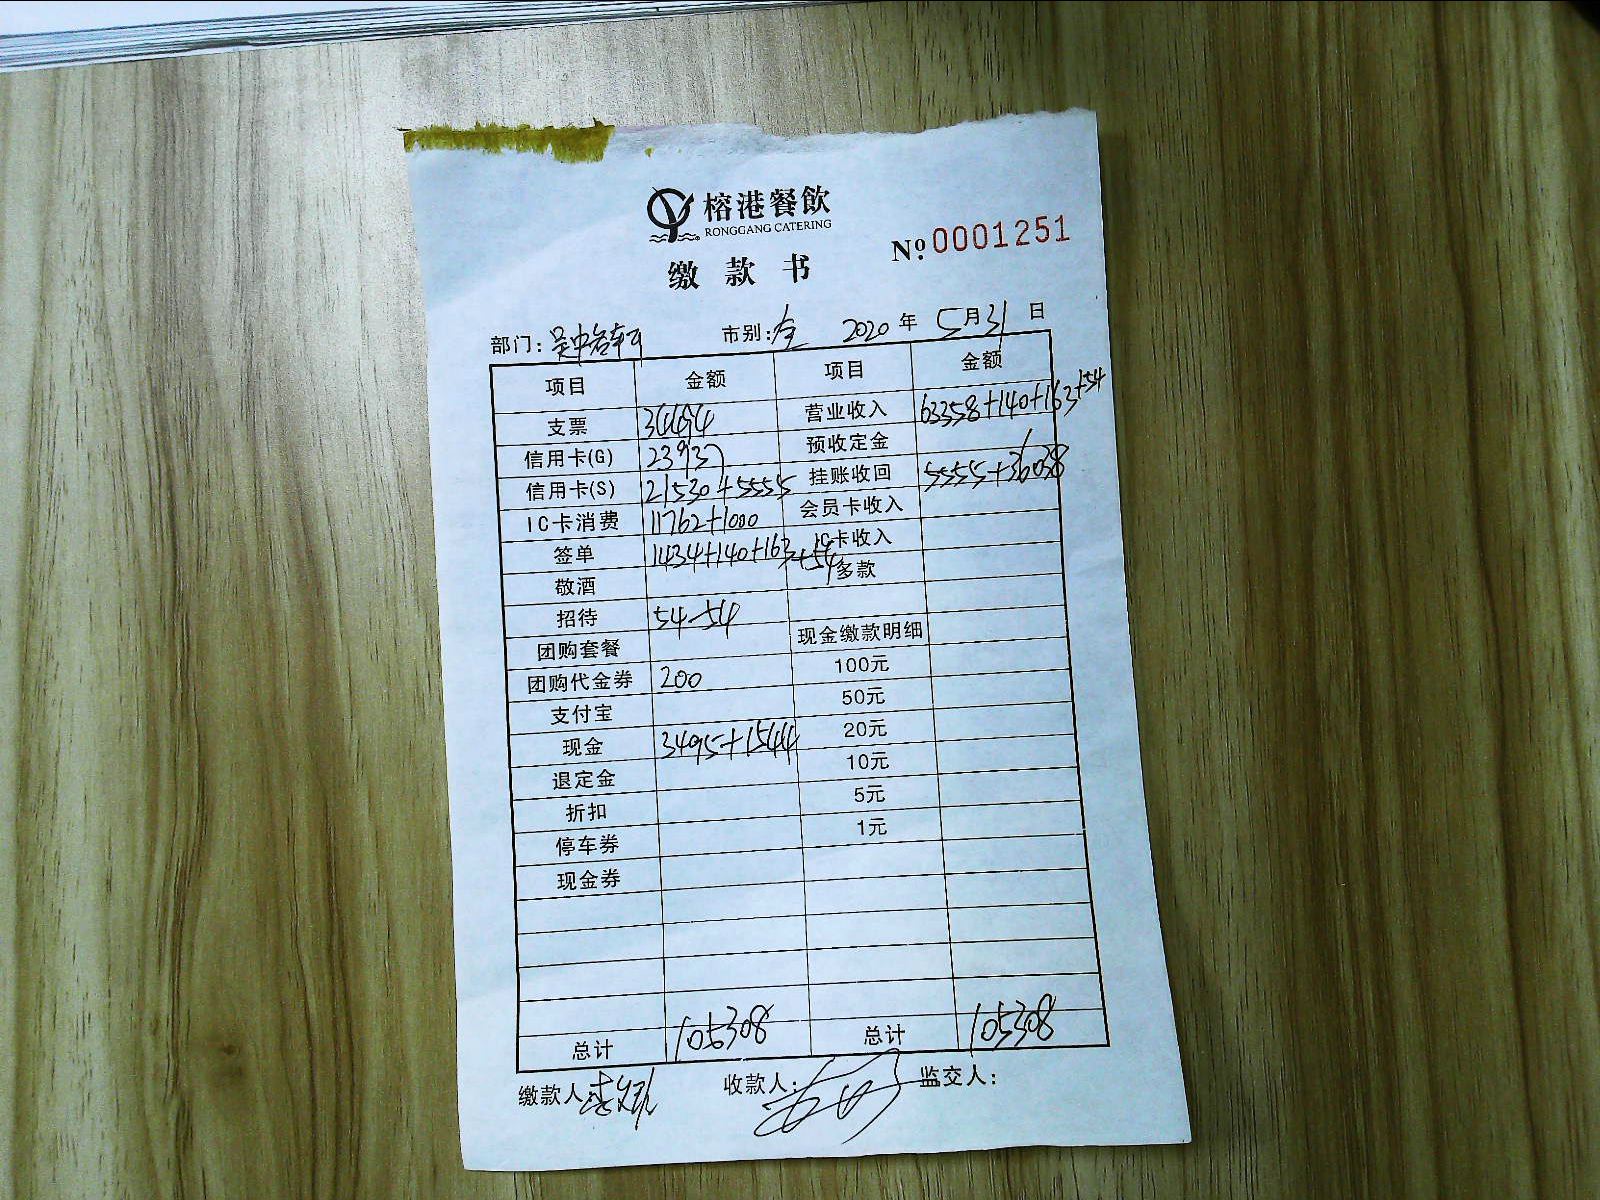 榕港餐飲
RONGGANG CATERING
缴款书
№ 0001251
部门: 吴中 市别: 全 2020 年 5 月 31 日
项目 金额 项目 金额
支票 34494 营业收入 63358+140+163+54
信用卡(G) 23937 预收定金
信用卡(S) 21530+5555 挂账收回 5555+36038
IC卡消费 11762+1000 会员卡收入
签单 1434+140+163+54 IC卡收入
敬酒 多款
招待 54-54
团购套餐 现金缴款明细
团购代金券 200 100元
支付宝 50元
现金 3495+1544 20元
退定金 10元
折扣 5元
停车券 1元
现金券
总计 105308 总计 105308
缴款人 收款人: 监交人: